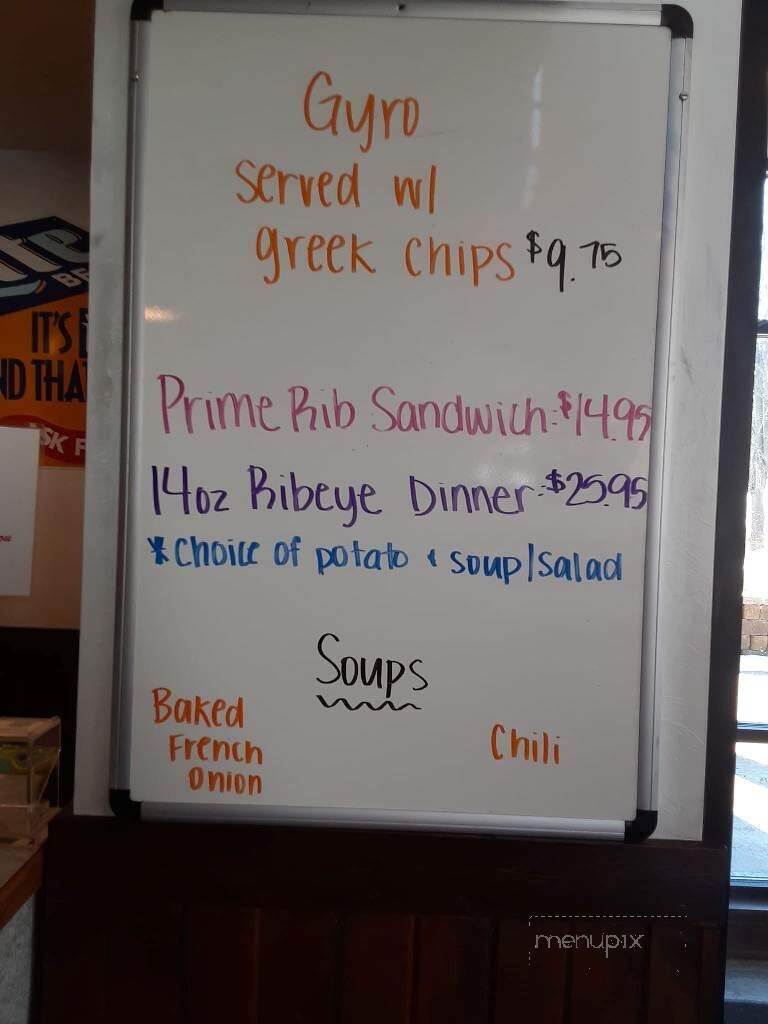 Gyro
served w/
greek chips $9.75
Prime Rib Sandwich: $14.95
14oz Ribeye Dinner: $25.95
*Choice of potato & soup/salad
Soups
Baked
French
Onion
Chili
IT'S
ND THA
SK F
menupix